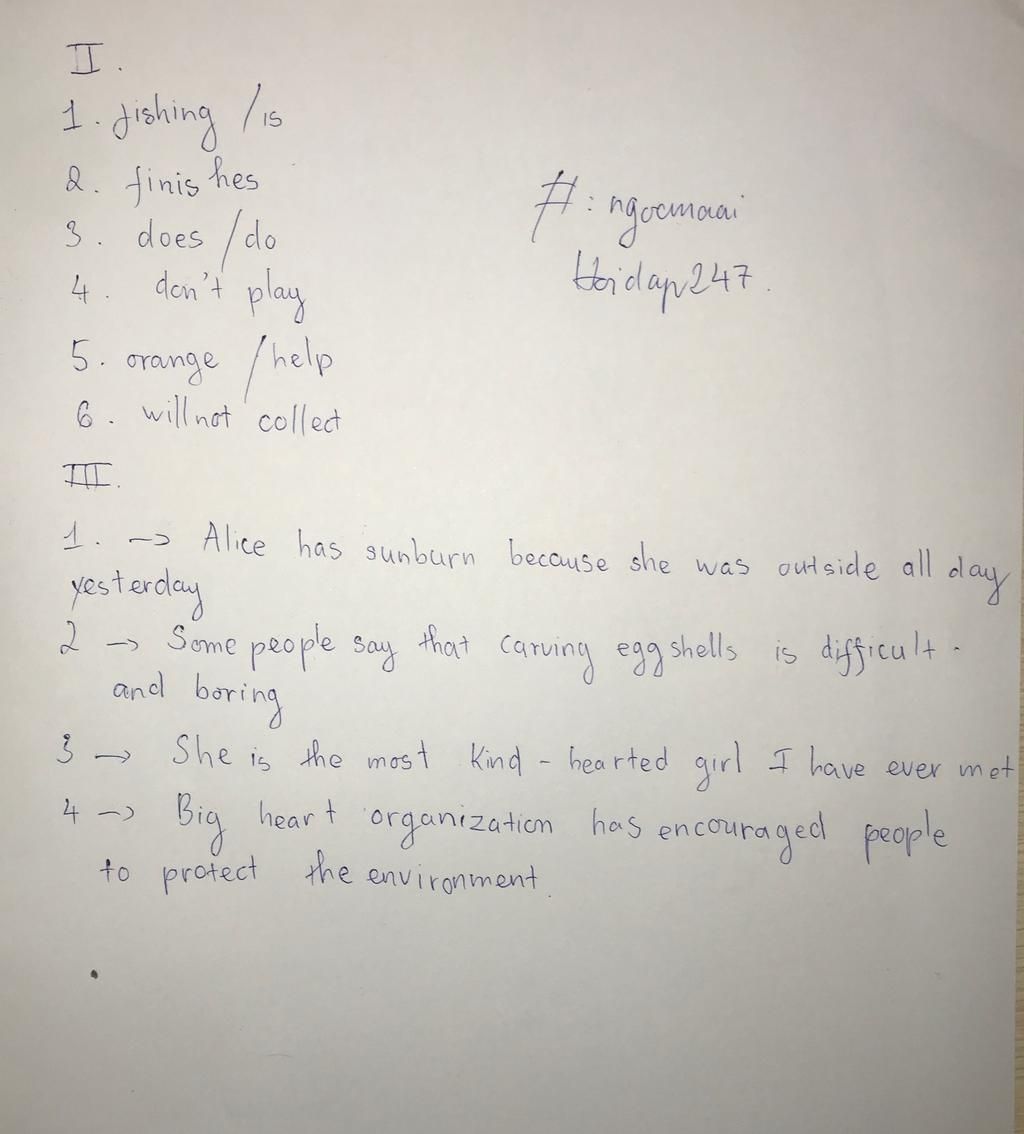 II.
1. fishing / is
2. finishes
3. does / do
4. don't play
5. orange / help
6. will not collect
#: ngocmaai
Hoidap247.
III.
1. -> Alice has sunburn because she was outside all day
yesterday
2 -> Some people say that carving eggshells is difficult
and boring
3 -> She is the most kind-hearted girl I have ever met
4 -> Big heart organization has encouraged people
to protect the environment.